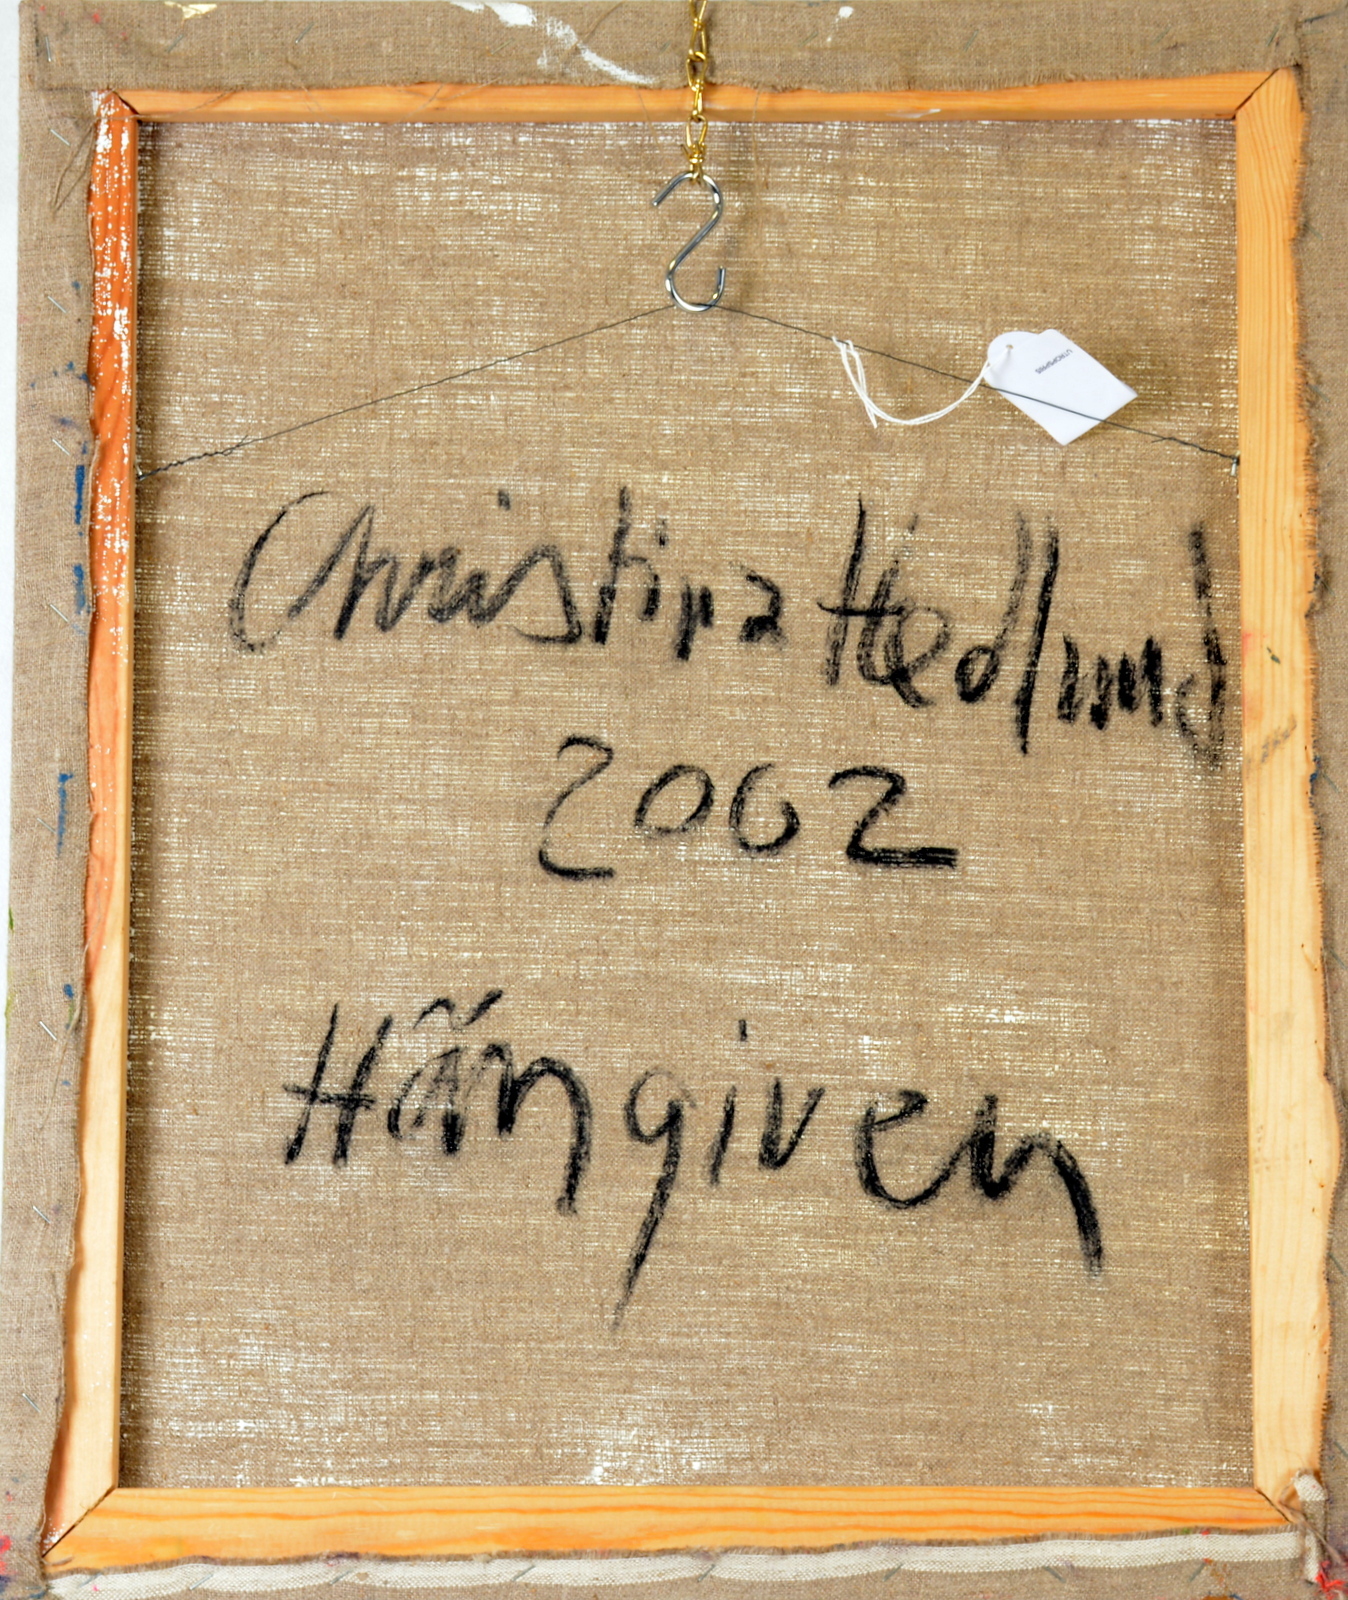 UTROPSPRIS
Christina Hedlund
2002
Hängiven